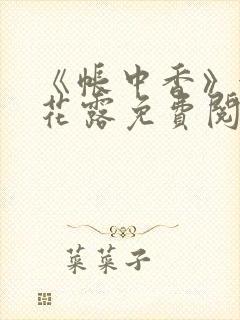 《帐中香》
花露免费阅
菜菜子